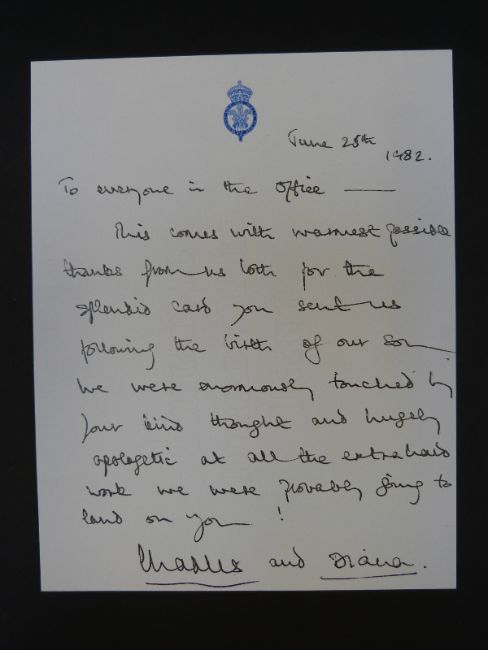 June 25th
1982.
To everyone in the office —
This comes with warmest possible
thanks from us both for the
splendid card you sent us
following the birth of our son.
We were enormously touched by
your kind thought and hugely
apologetic at all the extra hard
work we were probably going to
land on you!
Charles and Diana.